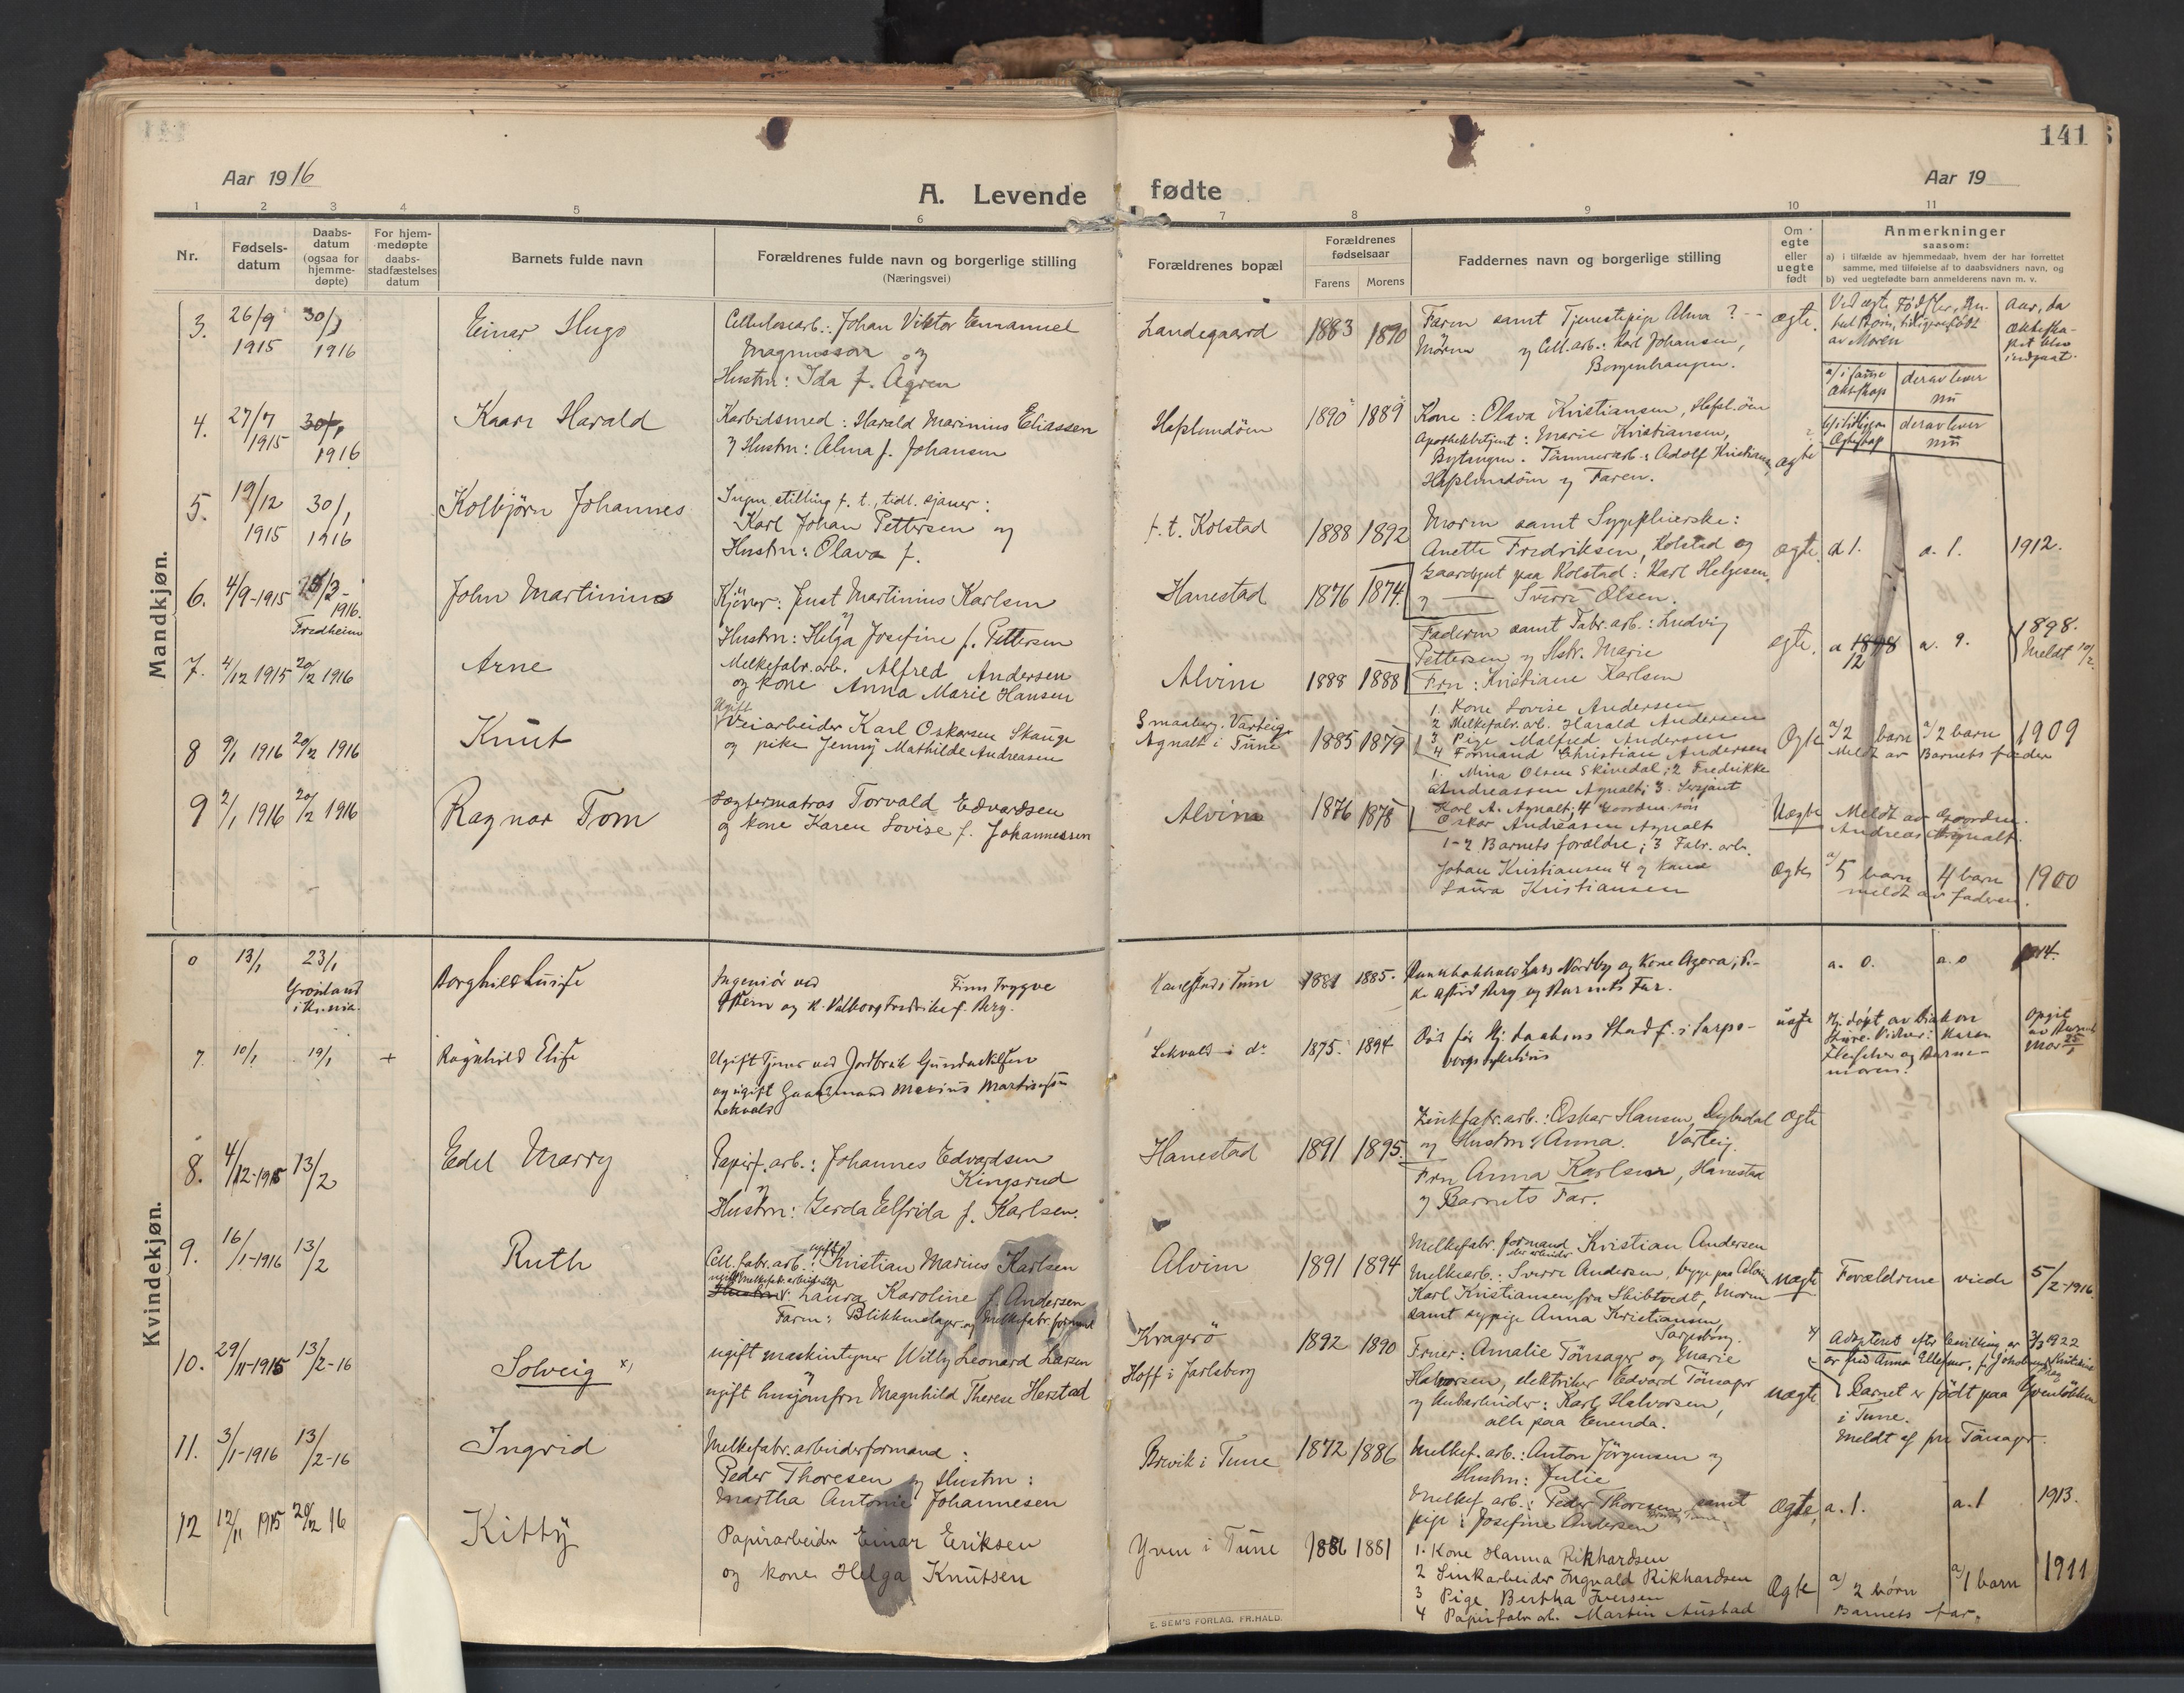 141
Aar 1916
A. Levende fødte
Aar 19
1 2 3 4 5 6 7 8 9 10 11
Nr.
Fødsels-
datum
Daabs-
datum
(ogsaa for
hjemme-
døpte)
For hjem-
medøpte
daabs-
stadfæstelses
datum
Barnets fulde navn
Forældrenes fulde navn og borgerlige stilling
(Næringsvei)
Forældrenes bopæl
Forældrenes
fødselsaar
Farens Morens
Faddernes navn og borgerlige stilling
Om
egte
eller
uegte
født
Anmerkninger
saasom:
a) i tilfælde av hjemmedaab, hvem der har forrettet
samme, med tilføielse af to daabsvidners navn, og
b) ved uegtefødte barn anmelderens navn m. v.
Mandkjøn.
3. 26/9 1915 30/1 1916
Einar Hugo
Cellulosearb.: Johan Viktor Emanuel
Magnusson og
Hustru: Ida f. Agren
Landegaard 1883 1890
Faren samt Tjenestepige Alma ? --
Moren og Cell.arb.: Karl Johansen,
Borgenhaugen.
ægte.
av Moren
Aar, da
ekteska-
pet blev
indgaat.
a/ i samme
Ekteskap
derav lever
nu
derav lever
nu
4. 27/7 1915 30/1 1916
Kaare Harald
Karbidsmed: Harald Marinius Eliassen
og Hustru: Alma f. Johansen
Hafslundöen 1890 1889
Kone: Olava Kristiansen, Hafsl.öen
Apothekbetjent: Marie Kristiansen,
Tömmerarb.: Adolf Kristiansen,
Hafslundöen og Faren.
ægte
5. 19/12 1915 30/1 1916
Kolbjörn Johannes
Ingen stilling f. t., tidl. sjauer:
Karl Johan Pettersen og
Hustru: Olava f.
f. t. Kolstad 1888 1892
Moren samt Sygepleierske:
Anette Fredriksen, Kolstad og
Gaardsgut paa Kolstad: Karl Helgesen,
og — Sverre Olsen.
ægte. a 1. a. 1. 1912.
6. 4/9-1915 13/2-1916.
Fredheim
John Martinius
Kjörer: Just Martinius Karlsen
og
Hustru: Helga Josefine f. Pettersen
Hanestad 1876 1874.
Faderen samt Fabr.arb.: Ludvig
Pettersen og Hstr. Marie
Fru: Kristiane Karlsen
ægte. a 12 a. 9. 1898.
Meldt 10/2
7. 4/12 1915 20/2 1916
Arne
Melkefabr.arb. Alfred Andersen
og kone Anna Marie Hansen
Alvim 1888 1888
1. Kone Lovise Andersen
2 Melkefabr.arb. Harald Andersen
3 Pige Malfred Andersen
4 Formand Christian Andersen
Ægte a/ 2 barn a/ 2 barn 1909
Meldt av Barnets fader
8 9/1 1916 20/2 1916
Knut
Ugift
Veiarbeider Karl Oskarsen Skauge
og pike Jenny Mathilde Andreasen
Smaaberg. Varteig
Agnalt i Tune 1885 1879
1. Mina Olsen Skivedal; 2 Fredrikke
Andreassen Agnalt; 3. Sersjant
Karl A. Agnalt; 4 Gaardm. søn
Oskar Andreasen Agnalt
Uægte Meldt av Gaardm.
Andreas Agnalt.
9 2/1 1916 20/2 1916
Ragnar Tom
Lægtermatros Torvald Edvardsen
og kone Karen Lovise f. Johannessen
Alvim 1876 1878
1-2 Barnets forældre; 3 Fabr. arb.
Johan Kristiansen 4 og kone
Laura Kristiansen
Ægte a/ 5 barn 4 barn 1900
meldt av faderen.
Kvindekjøn.
13/1 23/1
Grönland
Borghild Luise
Ingeniör ved Finn Trygve
og k. Valborg Fredrike f. Berg.
Hanestad i Tune 1881 1885.
Lars Nordby og Kone Agora;
Astrid Berg og Barnets Far.
a. 0. a. 0 1914.
7. 10/1 19/1 +
Ragnhild Elise
og ugift Gaardmand Marius Martinsen
Lekvold
Lekvold i do 1875. 1894
uegte
8. 4/12-1915 13/2
Edel Marry
Papirf.arb.: Johannes Edvardsen
Kingsrud
og
Hustru: Gerda Elfrida f. Karlsen.
Hanestad 1891 1895.
Zinkfabr.arb.: Oskar Hansen, Dybedal
og Hustru: Anna. Varteig.
Fru Anna Karlsen, Hanestad
og Barnets Far.
Ægte
9. 16/1-1916 13/2
Ruth
Cell. fabr. arb.: ugift Kristian Marius Karlsen
Hustru: Laura Karoline f. Andersen
Faren: Blikkenslager og Melkefabr. formand
Alvim 1891 1894
Melkefabr. formand Kristian Andersen
Melkearb.: Sverre Andersen, begge paa Alvim
Karl Kristiansen fra Skibtvedt, Moren
samt sypige Anna Kristiansen,
Sarpsborg.
uægte Forældrene viede 5/2-1916.
10. 29/11-1915 13/2-16
Solveig x)
ugift Maskintegner Willy Leonard Larsen
og
ugift husjomfru Magnhild Therese Herstad
Kragerö 1892 1890
Hoff i Jarlsberg
Fruer: Amalie Tönsager og Marie
Halvorsen, elektriker Edvard Tönsager
og Karl Halvorsen,
alle paa Enenda.
uægte
x) Adopteret efter bevilling av 3/3 1922
Barnet er født paa Yvenlökken
i Tune.
Meldt af fru Tönsager.
11. 3/1-1916 13/2-16
Ingrid
Melkefabr. arbeiderformand:
Peder Thoresen og Hustru:
Martha Antonie Johannesen
Brevik i Tune 1872 1886
Melkef. arb.: Anton Jörgensen og
Hustru: Julie
Melkef. arb.: Peder Thoresen samt
pige: Josefine Andersen
Ægte, a. 1. a. 1 1913.
12 12/11 1915 20/2 16
Kitty
Papirarbeider Einar Eriksen
og kone Helga Knutsen
Yven i Tune 1886 1881
1. Kone Hanna Rikhardsen
2 Sinkarbeider Ingvald Rikhardsen
3 Pige Bertha Iversen
4 Papirfabr. arb. Martin Austad
Ægte a/ 2 børn a/ 1 barn 1911
Barnets far.
E. SEM'S FORLAG. FR.HALD.